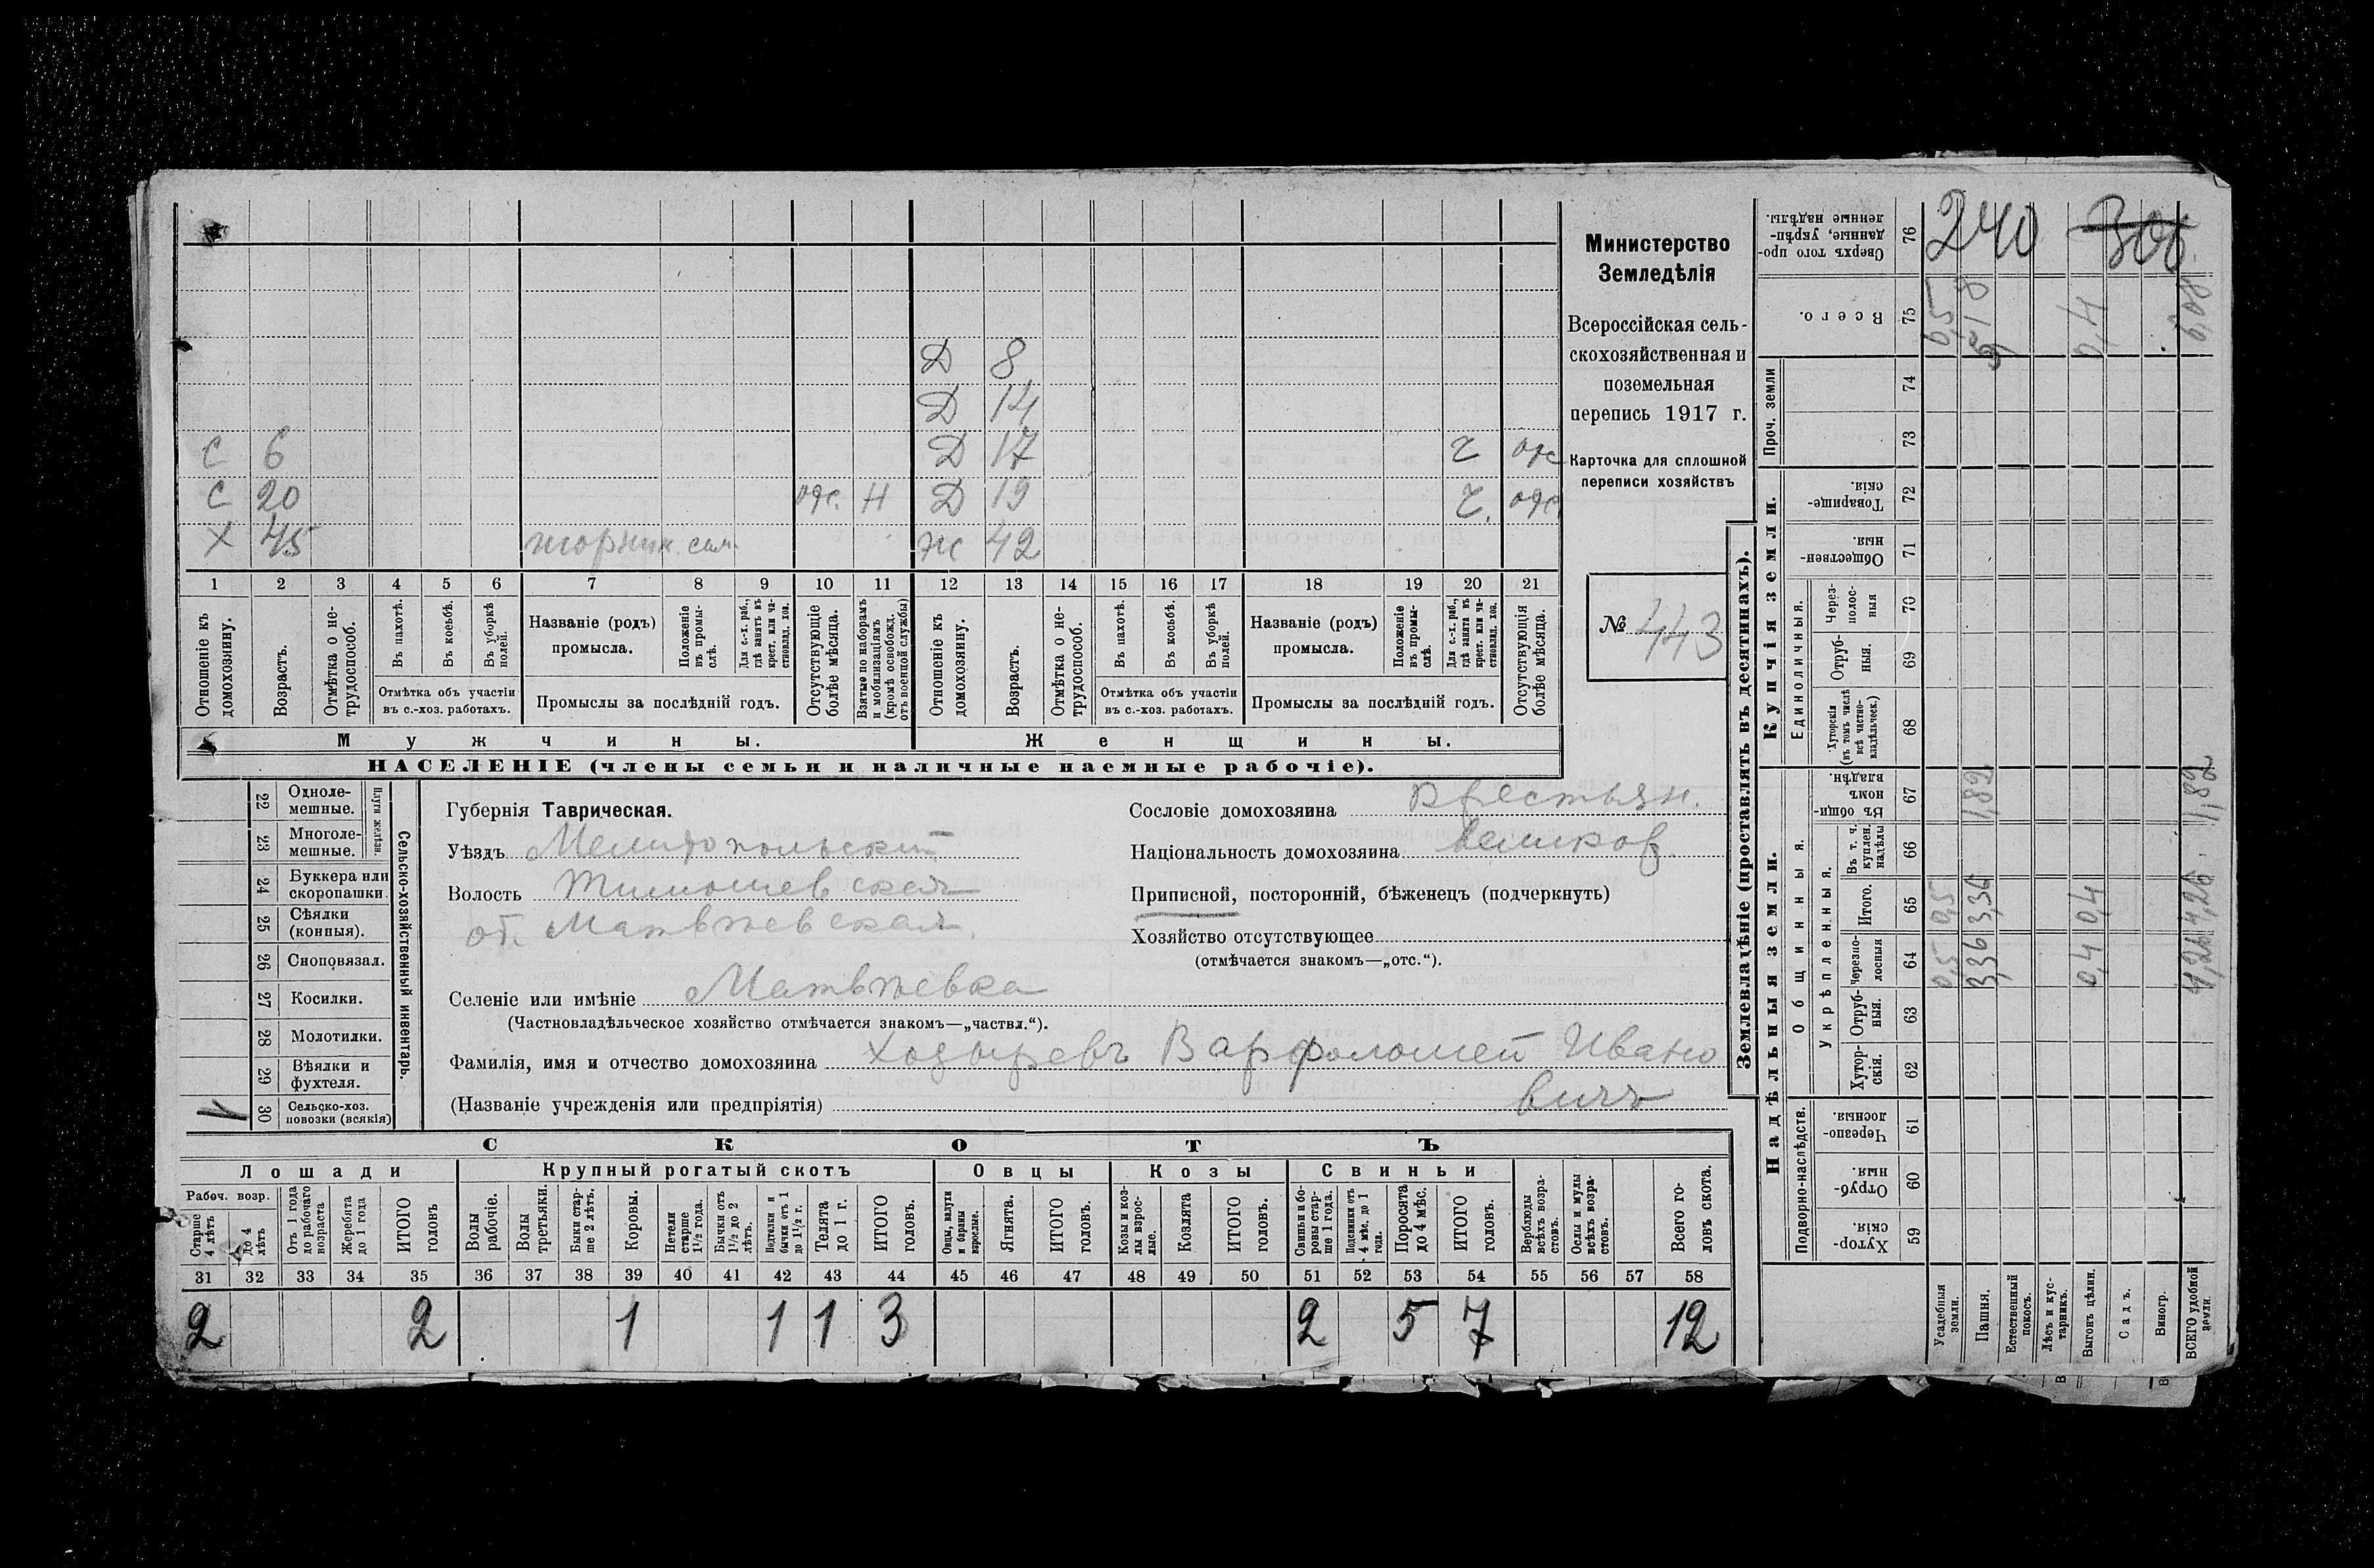 Министерство
Земледѣлія
Всероссійская сель-
скохозяйственная и
поземельная
перепись 1917 г.
Карточка для сплошной
переписи хозяйствъ
№ 443
Д 8
Д 14
С 6 Д 17 отс
С 20 отс. Н Д 19 отс.
Х 45 ж 42
1 2 3 4 5 6 7 8 9 10 11 12 13 14 15 16 17 18 19 20 21
Отношеніе къ домохозяину.
Возрастъ.
Отмѣтка о не-трудоспособ.
Въ пахотѣ.
Въ косьбѣ.
Въ уборкѣ полей.
Отмѣтка объ участіи
въ с.-хоз. работахъ.
Названіе (родъ)
промысла.
Положеніе въ промы-слѣ.
Для с.-х. раб., гдѣ занятъ въ крест. или ча-стновлад. хоз.
Промыслы за послѣдній годъ.
Отсутствующіе болѣе мѣсяца.
Взятые по наборамъ и мобилизаціямъ (кромѣ освобожд. отъ военной службы)
Отношеніе къ домохозяину.
Возрастъ.
Отмѣтка о не-трудоспособ.
Въ пахотѣ.
Въ косьбѣ.
Въ уборкѣ полей.
Отмѣтка объ участіи
въ с.-хоз. работахъ.
Названіе (родъ)
промысла.
Положеніе въ промы-слѣ.
Для с.-х. раб., гдѣ занята въ крест. или ча-стновлад. хоз.
Промыслы за послѣдній годъ.
Отсутствующія болѣе мѣсяца.
Мужчины. Женщины.
НАСЕЛЕНІЕ (члены семьи и наличные наемные рабочіе).
Сельско-хозяйственный инвентарь.
Плуги желѣзн.
22 Одноле-мешные.
23 Многоле-мешные.
24 Буккера или скоропашки.
25 Сѣялки (конныя).
26 Сноповязал.
27 Косилки.
28 Молотилки.
29 Вѣялки и фухтеля.
30 Сельско-хоз. повозки (всякія)
Губернія Таврическая.
Уѣздъ Мелитопольскій
Волость Тимошевская
об. Матвѣевская.
Селеніе или имѣніе Матвѣевка
(Частновладѣльческое хозяйство отмѣчается знакомъ—„частвл.“).
Фамилія, имя и отчество домохозяина Ходыревъ Варфоломей Ивано
вичъ
(Названіе учрежденія или предпріятія)
Сословіе домохозяина Крестьян.
Національность домохозяина великор.
Приписной, посторонній, бѣженецъ (подчеркнуть)
Хозяйство отсутствующее
(отмѣчается знакомъ—„отс.“).
СКОТЪ
Лошади Крупный рогатый скотъ Овцы Козы Свиньи
Рабоч. возр.
Старше 4 лѣтъ
до 4 лѣтъ
Отъ 1 года до рабочаго возраста
Жеребята до 1 года
ИТОГО головъ
Волы рабочіе.
Волы третьяки.
Быки стар-ше 2 лѣтъ.
Коровы.
Нетели старше 1½ года.
Бычки отъ 1½ до 2 лѣтъ.
Подтелки и бычки отъ 1 до 1½ г.
Телята до 1 г.
ИТОГО головъ.
Овцы, валухи и бараны взрослые.
Ягнята.
ИТОГО головъ.
Козы и коз-лы взрос-лые.
Козлята
ИТОГО головъ.
Свиньи и бо-ровы стар-ше 1 года.
Подсвинки отъ 4 мѣс. до 1 года.
Поросята до 4 мѣс.
ИТОГО головъ.
Верблюды всѣхъ возра-стовъ.
Ослы и мулы всѣхъ возра-стовъ.
Всего го-ловъ скота.
31 32 33 34 35 36 37 38 39 40 41 42 43 44 45 46 47 48 49 50 51 52 53 54 55 56 57 58
2 2 1 1 1 3 2 5 7 12
Землевладѣніе (проставлять въ десятинахъ).
Надѣльныя земли.
Купчія земли.
Проч. земли
Подворно-наслѣдств.
Общинныя.
Укрѣпленныя.
Единоличныя.
Сверхъ того про-данные, укрѣп-ленные надѣлы. 76 240 300
Всего. 75 0,55 5,18 0,4 6,08
74
73
Товарище-скія. 72
Обществен-ныя. 71
Через-полос-ныя 70
Отруб-ныя. 69
Хуторскія (въ томъ числѣ всѣ частно-владѣльческ.) 68
Въ общин-номъ владѣн. 67 1,82 1,82
Въ т. ч. куплен. надѣлы 66
Итого. 65 0,5 3,36 0,4 4,26
Черезпо-лосныя 64 0,5 3,36 0,4 4,26
Отруб-ныя. 63
Хутор-скія. 62
Черезпо-лосныя. 61
Отруб-ныя. 60
Хутор-скія. 59
Усадебныя земли.
Пашня.
Естественный покосъ.
Лѣсъ и кус-тарникъ.
Выгонъ цѣлин.
Садъ.
Виногр.
ВСЕГО удобной земли.